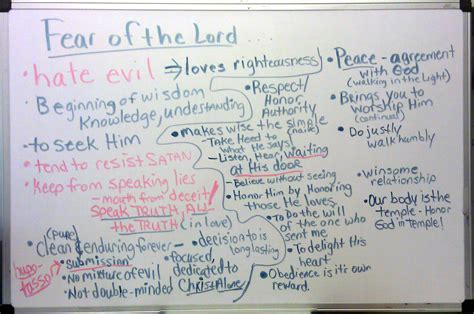 Fear of the Lord...
• hate evil ⇒ loves righteousness
• Beginning of wisdom
Knowledge, understanding
• to seek Him
• tend to resist SATAN
• Keep from speaking lies
- mouth from deceit
SPEAK TRUTH, ALL
the TRUTH (in love)
(pure)
• clean & enduring forever - decision to is
long lasting
• submission
• No mixture of evil
• Not double-minded
• focused,
dedicated to
Christ Alone
• Respect/
Honor
Authority
• makes wise the simple
(naive)
- Take Heed to
What He Says
- Listen, Hear, waiting
at His door
- Believe without seeing
• Honor Him by Honoring
those He loves.
• To Do the will
of the one who
sent me
• To delight His
heart
• Obedience is it's own
reward.
• Peace - agreement
with God
(walking in the Light)
• Brings You to
Worship Him
(continual)
• Do justly
walk humbly
• winsome
relationship
• Our body is the
temple - Honor
God in temple!